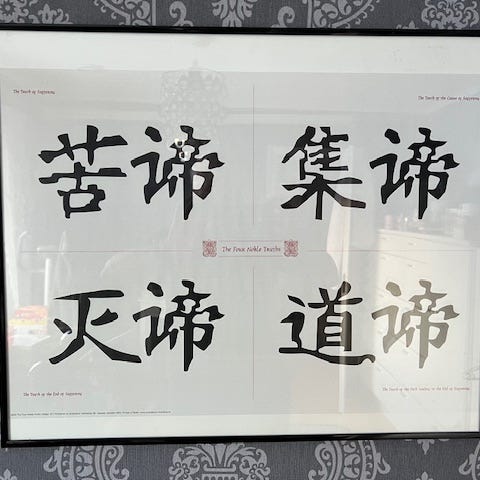 The Truth of Suffering
The Truth of the Cause of Suffering
苦谛
集谛
The Four Noble Truths
灭谛
道谛
The Truth of the End of Suffering
The Truth of the Path leading to the End of Suffering